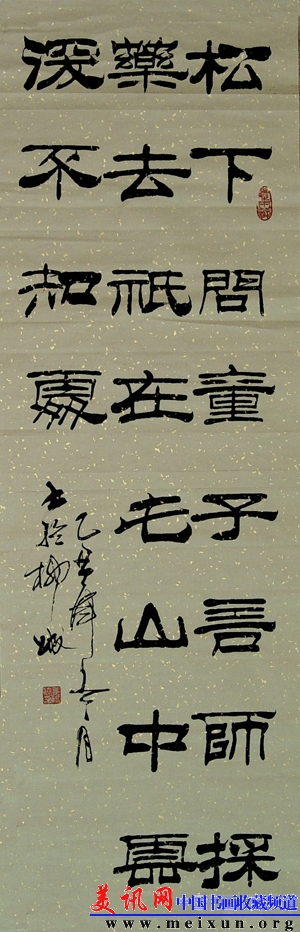 松下問童子言師採
藥去祇在此山中雲
深不知處
乙丑
書於柳城
美讯网 中国书画收藏频道
www.meixun.org